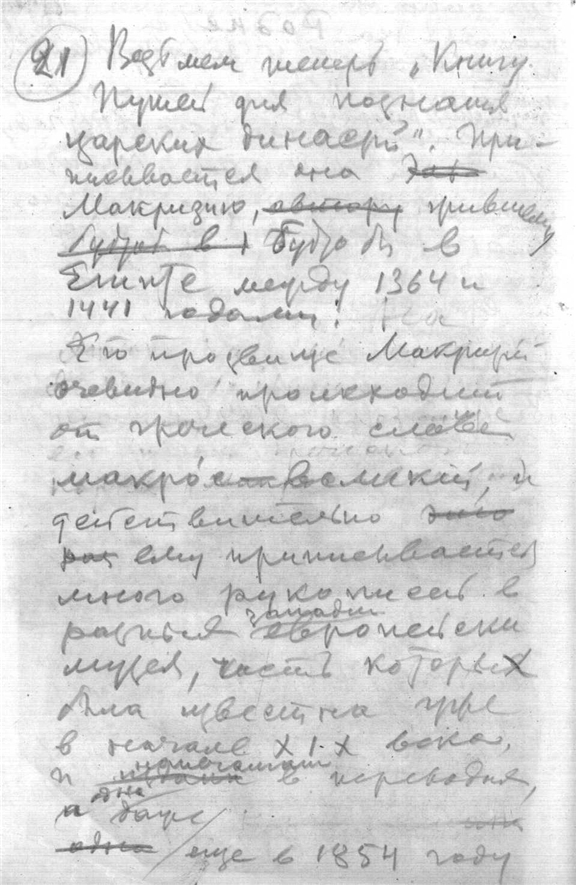 21 Возьмем теперь „Книгу
Путей для познания
царских династий“. При-
писывается она
Макризию, автору жившему
будто в будто бы в
Египте между 1364 и
1441 годами! На
Его прозвище Макризи
очевидно происходит
от греческого слова
макрос великий, и
действительно это
ему приписывается
много рукописей в
западн
разных европейски
музея, часть которых
была известна уже
в начале XIX века,
напечатаны
и изданы в переводах,
одна
а даже
одна еще в 1854 году